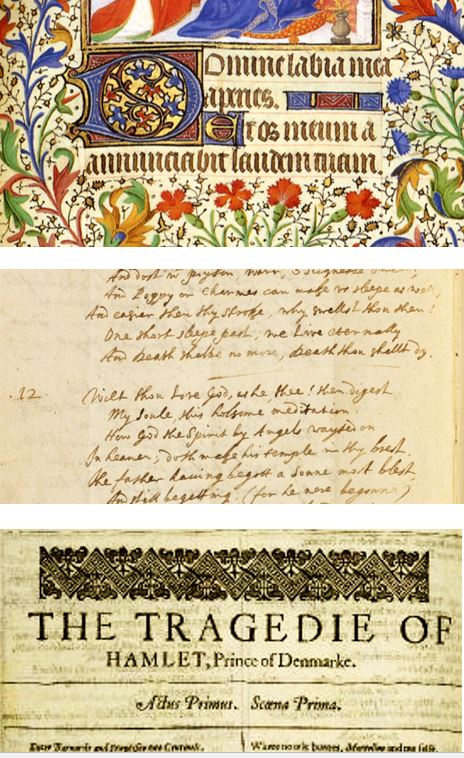 Domine labia mea
apries.
Et os meum a
annunciabit laudem tuam.
And dost w poyson, warr, & sicknesse
And Poppy or charmes can make vs sleepe as well,
And easier then thy stroke, why swellst thou then?
One short sleepe past, we Live eternally
And Death shalbe no more, Death thou shallt dy.
.12. Wilt thou Love God, as he thee? then digest
My Soule this holsome meditation:
How God the Spirit by Angels wayted on
In heauen; doth make his temple in thy brest.
The father hauing begott a Sonne most blest,
And still begetting, (for he nere begonne)
THE TRAGEDIE OF
HAMLET, Prince of Denmarke.
Actus Primus. Scœna Prima.
Enter Barnardo and Francisco two Centinels.